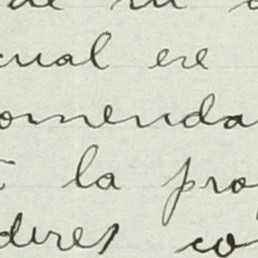 de su
cual ere
omenda
la pro
deres co